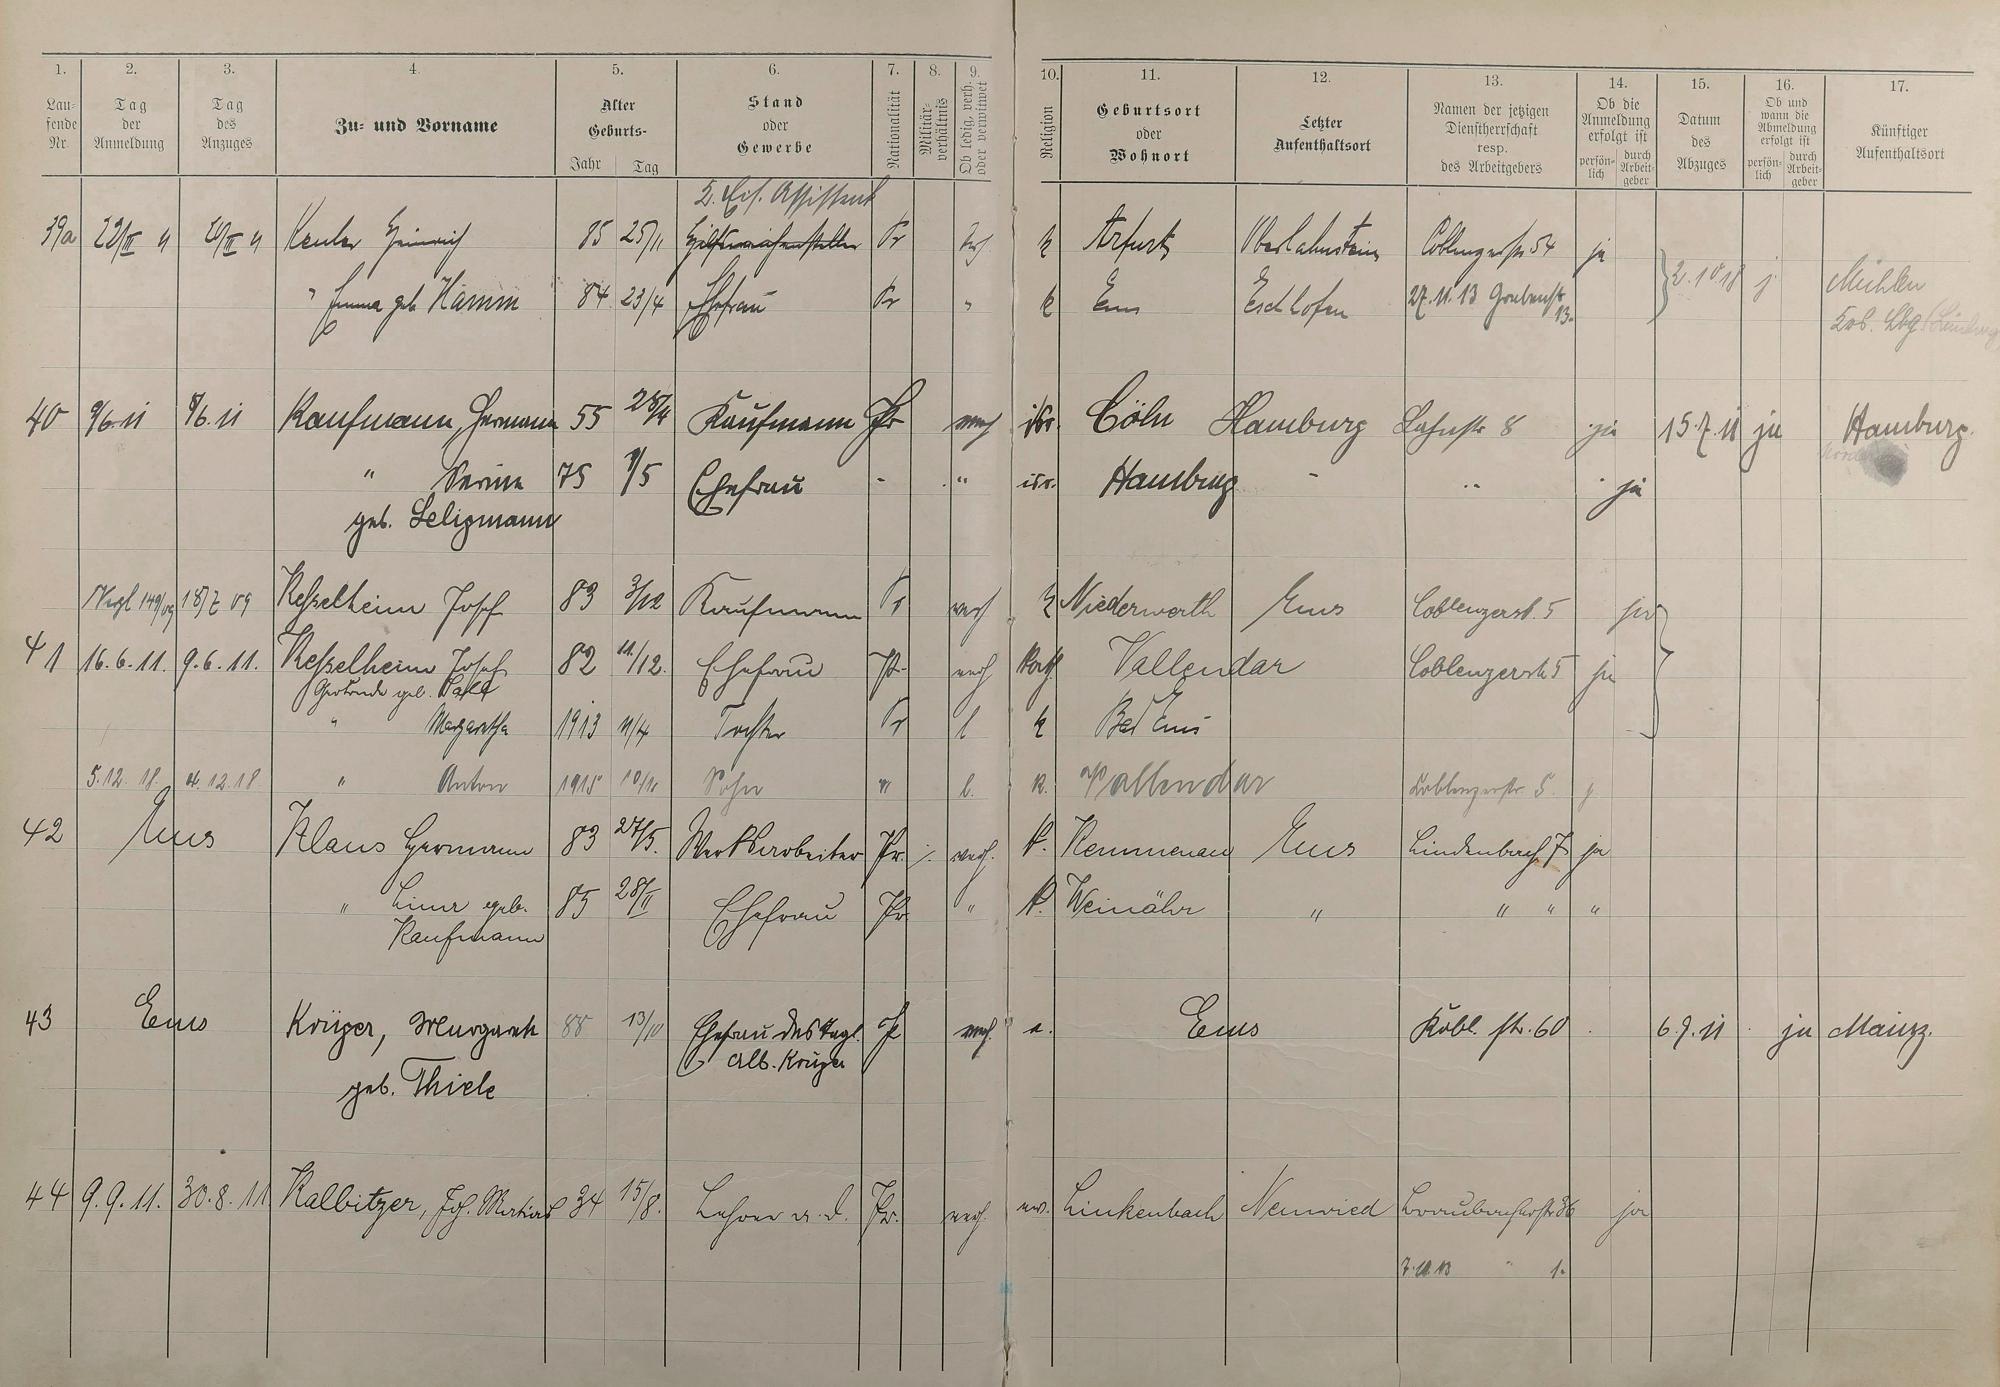 1. 2. 3. 4. 5. 6. 7. 8. 9. 10. 11. 12. 13. 14. 15. 16. 17.
Laufende Nr. Tag der Anmeldung Tag des Anzuges Zu- und Vorname Alter Geburts- Jahr Tag Stand oder Gewerbe Nationalität Militärverhältnis Ob ledig, verh. oder verwitwet Religion Geburtsort oder Wohnort Letzter Aufenthaltsort Namen der jetzigen Dienstherrschaft resp. des Arbeitgebers Ob die Anmeldung erfolgt ist persönlich durch Arbeitgeber Datum des Abzuges Ob und wann die Abmeldung erfolgt ist persönlich durch Arbeitgeber Künftiger Aufenthaltsort
Z. Eis. Assistent
39a Heinrich 85 25/11 Pr k Arfurt Oberlahnstein Coblenzerstr 54 ja
" Emma geb Hamm 84 23/4 Ehefrau Pr " k Ems Eschhofen 27.11.13 Grabenstr 13. 2.10 18 j. Mühlen
Lbg (Limburg)
40 9/6.11 Kaufmann, Hermann 55 28/4 Kaufmann Pr verh isr. Cöln Hamburg Lahnstr 8 ja 15.7.11 ja Hamburg.
" 75 Ehefrau - " isr. Hamburg - " ja
geb. Seligmann
Vergl 149/09 18/7 09 Kesselheim Josef 83 3/12 Kaufmann Pr verh k Niederwerth Ems Coblenzerstr. 5 ja
41 16.6.11. 9.6.11. Kesselheim Josef 82 11/12. Ehefrau Pr. verh Kath. Vallendar Coblenzerstr 5 ja
Gertrude geb.
" Margaretha 1913 11/4 Tochter Pr l k Bad Ems
5.12 18. 4.12.18 " Anton 1915 Sohn " l. k. Vallendar Coblenzerstr. 5. j
42 Ems Klaus Hermann 83 27/5. Werksarbeiter Pr. verh. k. Kemmenau Ems Lindenbach 7 ja
" Lina geb. 85 28/II Ehefrau Pr " k. Weinähr " " " "
Kaufmann
43 Ems Krüger, Margareth 88 13/10 Ehefrau des Tagl. Pr verh. e. Ems Kobl. str. 60 6.9.11 ja Mainz.
Alb. Krüger
geb. Thiele
44 9.9.11. 30.8.11. Kalbitzer, Joh. 34 15/8. Lehrer a. d. Pr. verh. ev. Linkenbach Neuwied Braubacherstr 36 ja
" 1.